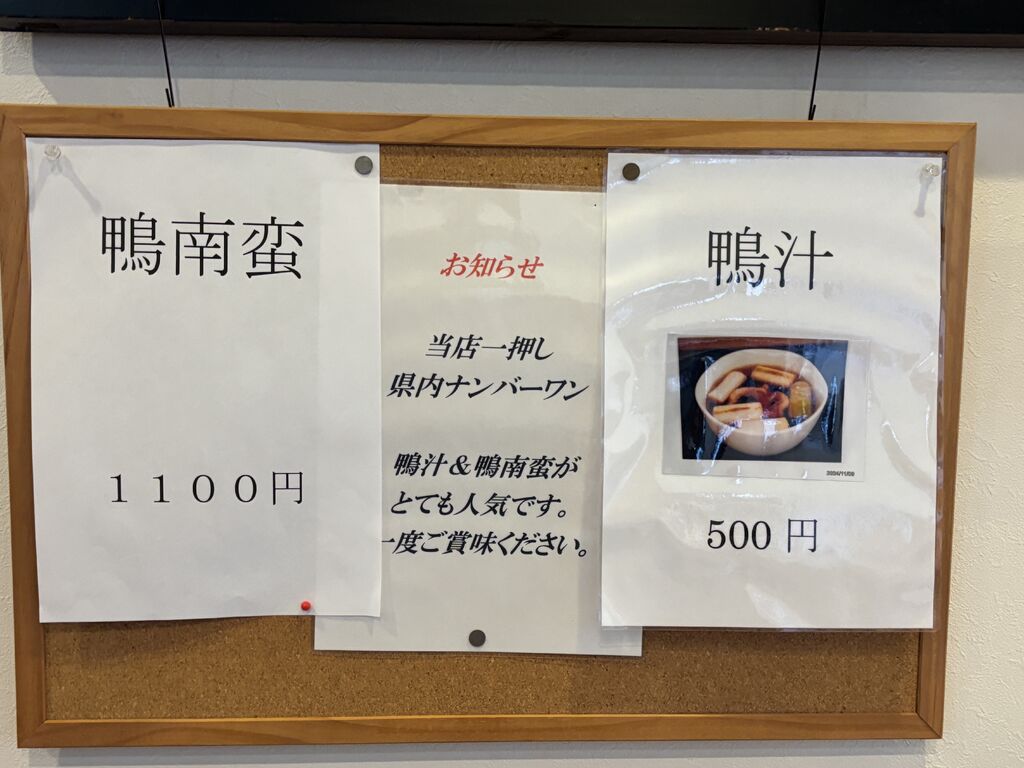 鴨南蛮
１１００円
お知らせ
当店一押し
県内ナンバーワン
鴨汁＆鴨南蛮が
とても人気です。
一度ご賞味ください。
鴨汁
2024/11/09
500 円